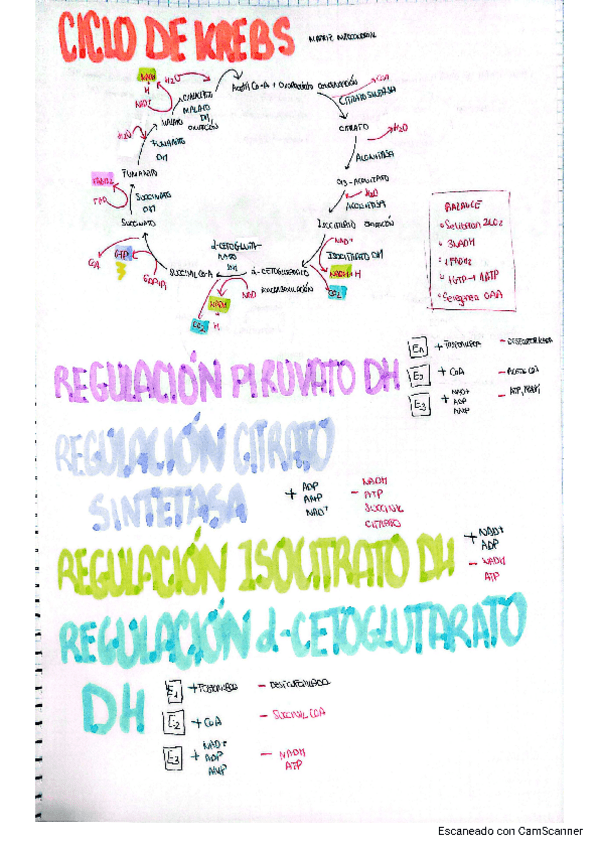 CICLO DE KREBS
MATRIZ MITOCONDRIAL
Acetil Co-A + Oxalacetato
CoA
CITRATO SINTASA
CITRATO
H2O
ACONITASA
CIS-ACONITATO
H2O
ACONITASA
ISOCITRATO
NAD+
ISOCITRATO DH
NADH + H
CO2
α-CETOGLUTARATO
α-CETOGLUTA-
RATO
DH
NAD
NADH
H
CO2
SUCCINIL CO-A
GTP
CoA
SUCCINATO
SUCCINATO
DH
FAD
FADH2
FUMARATO
FUMARATO
DH
H2O
MALATO
MALATO
DH
NAD+
NADH
H
H2O
BALANCE
Se liberan 2CO2
3NADH
1FADH2
1GTP → 1ATP
Se regenera OAA
REGULACIÓN PIRUVATO DH
E1 + FOSFORILADA
E2 + CoA
E3 + NAD+
ADP
AMP
REGULACIÓN CITRATO
SINTETASA
+ ADP
AMP
NAD+
- NADH
ATP
SUCCINIL
CITRATO
REGULACIÓN ISOCITRATO DH
+ NAD+
ADP
- NADH
ATP
REGULACIÓN α-CETOGLUTARATO
DH
E1 + FOSFORILADA - DESFOSFORILADA
E2 + CoA - SUCCINIL COA
E3 + NAD+
ADP
AMP
- NADH
ATP
Escaneado con CamScanner